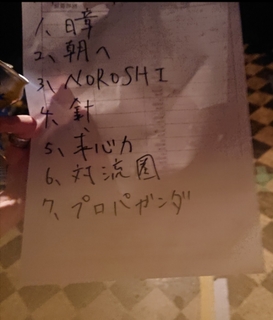 1、日章
2、朝へ
3、NOROSHI
4、針
5、求心力
6、対流圏
7、プロパガンダ